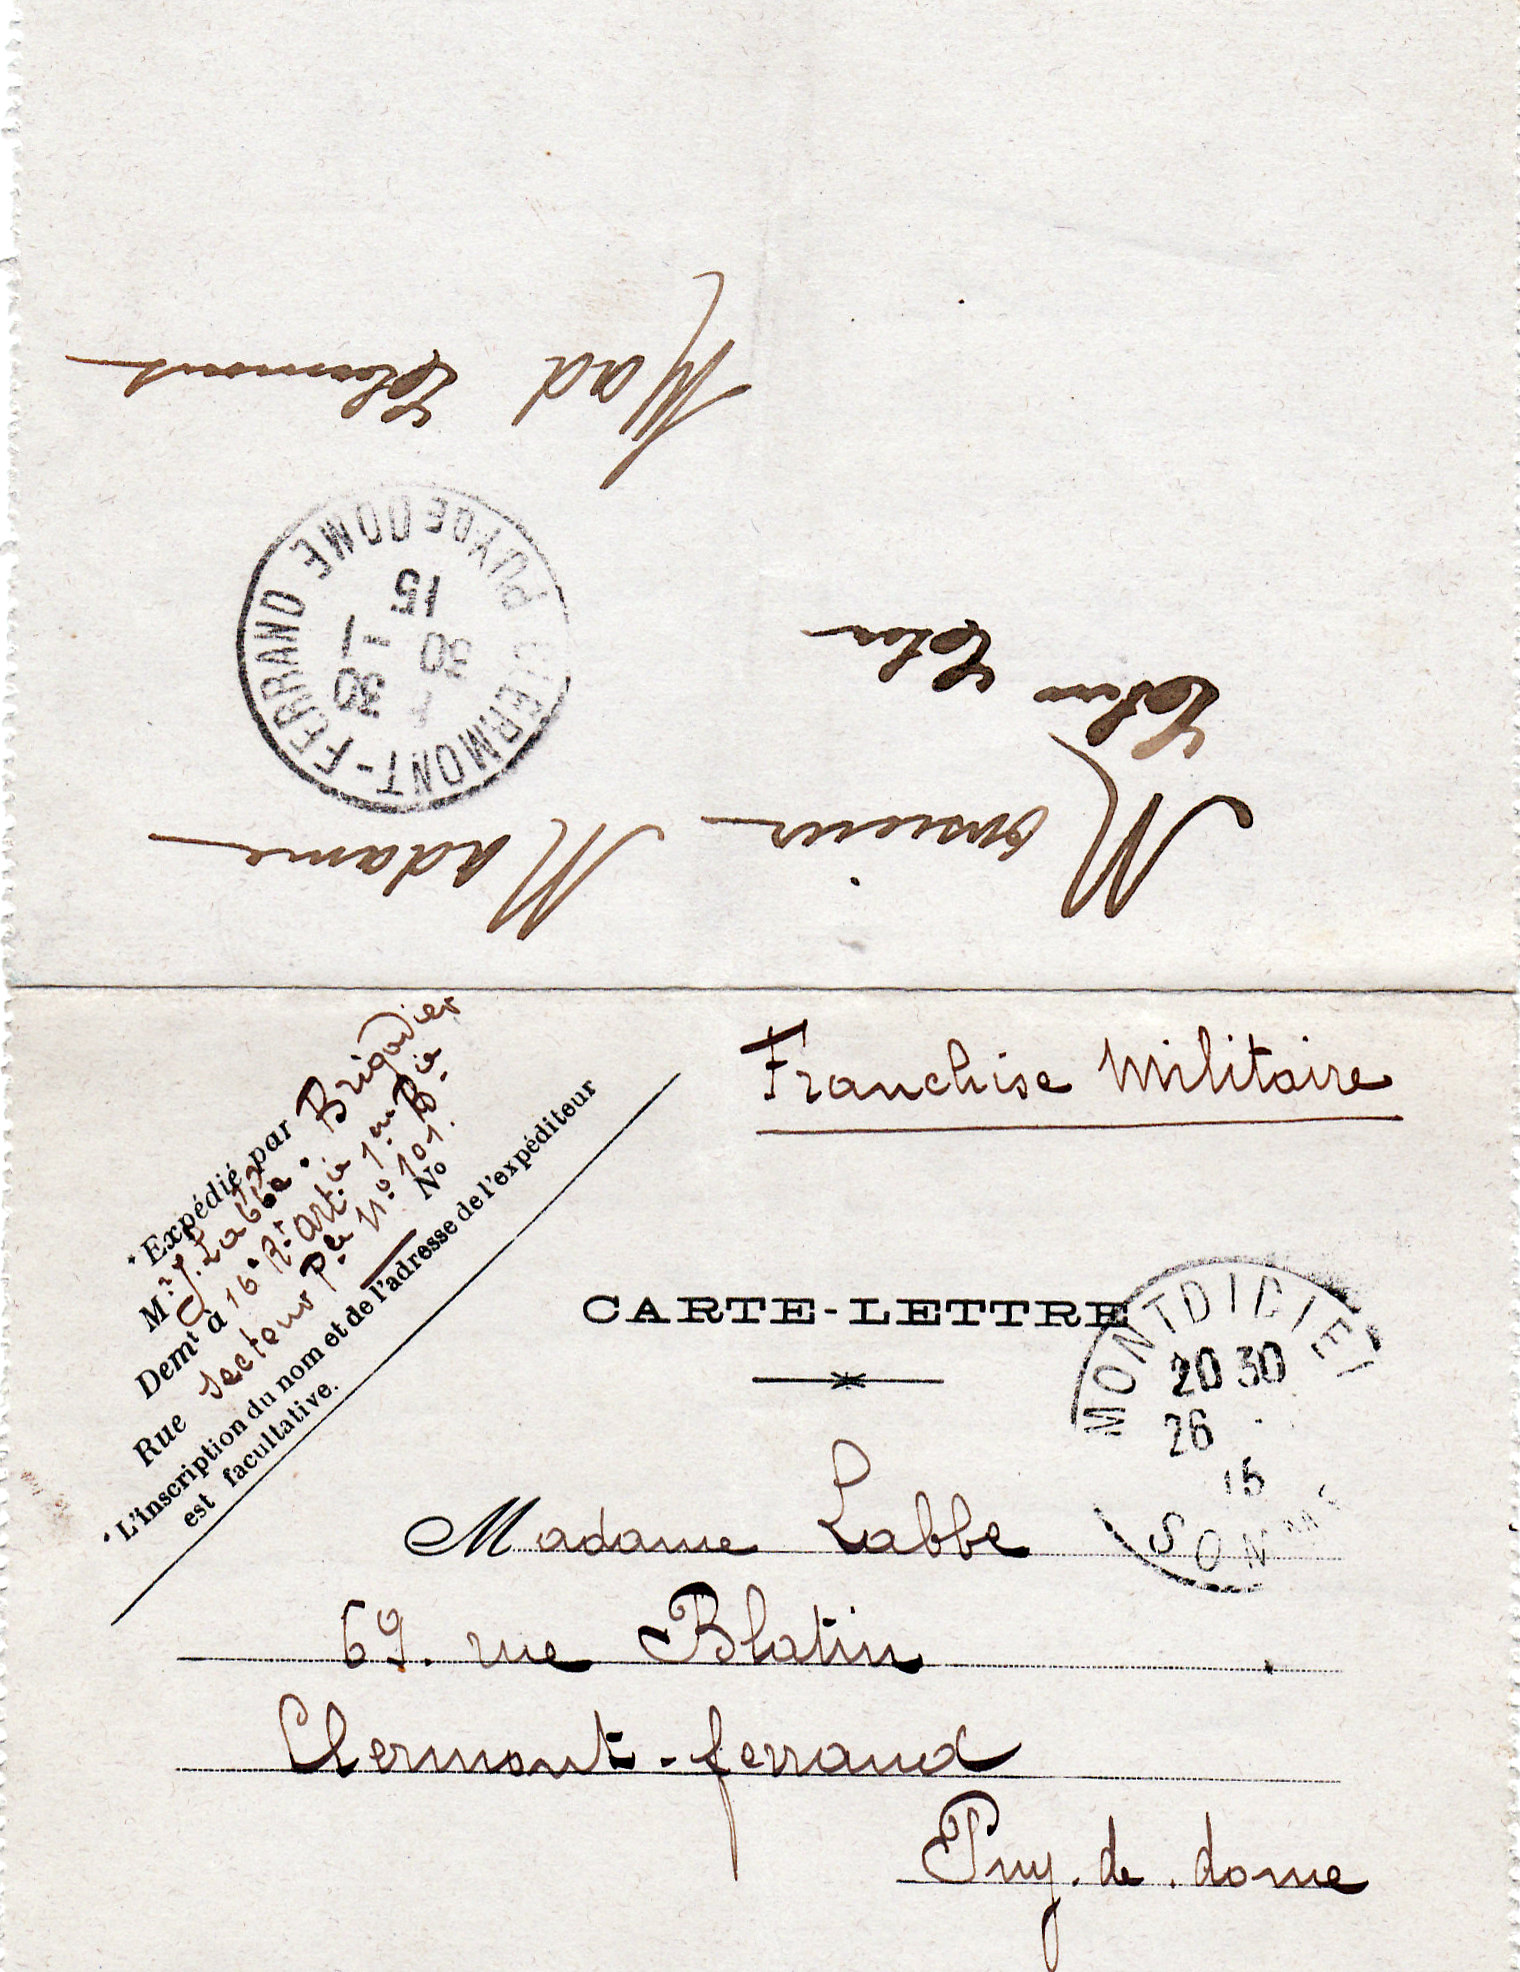 Mad
Monsieur Madame
PUY DE DOME
CLERMONT-FERRAND
30
30 -1
15
Franchise Militaire
*Expédié par Brigadier
Mr J. Labbe.
Demt à 16e Rt artie 1ere Bie
Rue secteur Pal No 101.
No
*L'inscription du nom et de l'adresse de l'expéditeur
est facultative.
CARTE-LETTRE
MONTDIDIER
20 30
26
15
SOMME
Madame Labbe
69. rue Blatin
Clermont-ferrand
Puy. de. dome